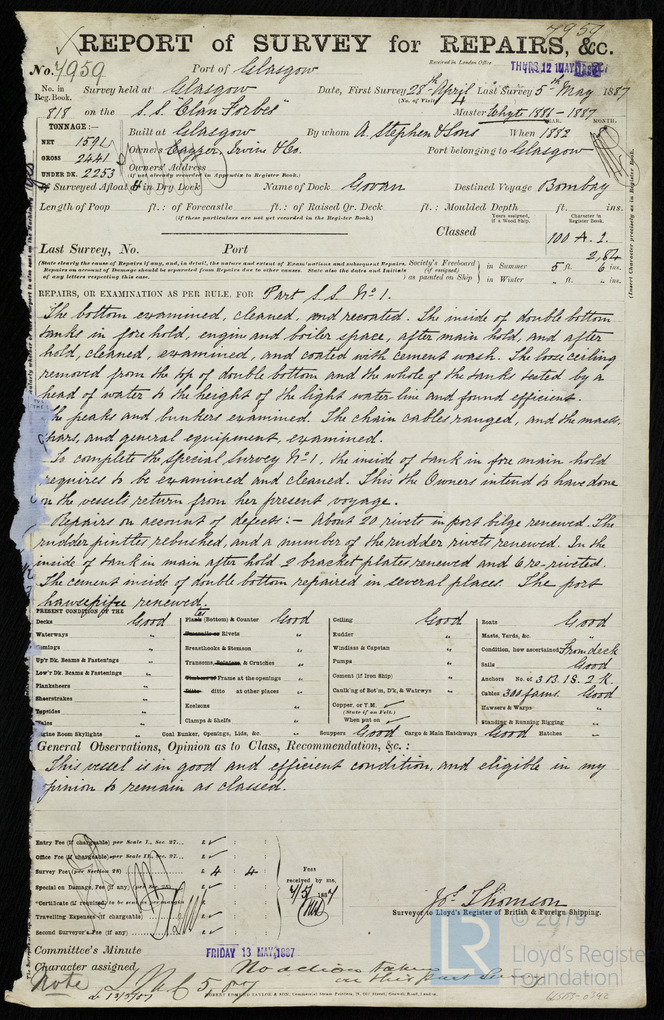 7959
REPORT of SURVEY for REPAIRS, &c.
No. 7959 Port of Glasgow Received in London Office THURS. 12 MAY 1887
No. in Reg. Book. Survey held at Glasgow Date, First Survey 28th April Last Survey 5th May 1887
(No. of Visits 4
818 on the S.S. "Clan Forbes" Master Whyte 1881-1887
YEAR. MONTH.
TONNAGE:—
NET 1591
GROSS 2441
UNDER DK. 2253
Built at Glasgow By whom A. Stephen & Sons When 1882
Owners Cayzer, Irvine & Co. Port belonging to Glasgow
Owners' Address
(If not already recorded in Appendix to Register Book.)
If Surveyed Afloat or in Dry Dock Name of Dock Govan Destined Voyage Bombay
Length of Poop ft.: of Forecastle ft.: of Raised Qr. Deck ft.: Moulded Depth ft. ins.
(If these particulars are not yet recorded in the Register Book.)
Years assigned, if a Wood Ship. Character in Register Book.
Classed 100 A. 1.
2,84
Last Survey, No. Port
(State clearly the cause of Repairs if any, and, in detail, the nature and extent of Examinations and subsequent Repairs. Repairs on account of Damage should be separated from Repairs due to other causes. State also the dates and Initials of any letters respecting this case.
Society's Freeboard (if assigned) as painted on Ship in Summer 5 ft. 6 ins.
in Winter " ft. " ins.
(Insert Character precisely as in Register Book.)
REPAIRS, OR EXAMINATION AS PER RULE, FOR Part S.S. No 1.
The bottom examined, cleaned, and recoated. The inside of double bottom
tanks in fore hold, engine and boiler space, after main hold, and after
hold, cleaned, examined, and coated with cement wash. The loose ceiling
removed from the top of double bottom and the whole of the tanks tested by a
head of water to the height of the light water-line and found efficient.
The peaks and bunkers examined. The chain cables ranged, and the masts,
spars, and general equipment, examined.
To complete the Special Survey No 1, the inside of tank in fore main hold
requires to be examined and cleaned. This the Owners intend to have done
on the vessels return from her present voyage.
Repairs on account of defects:— About 20 rivets in port bilge renewed. The
rudder pintles rebushed, and a number of the rudder rivets renewed. In the
inside of tank in main after hold 2 bracket plates renewed and 6 re-riveted.
The cement inside of double bottom repaired in several places. The port
hawsepipe renewed.
PRESENT CONDITION OF THE
Decks Good
Waterways "
Comings "
Up'r Dk. Beams & Fastenings "
Low'r Dk. Beams & Fastenings "
Planksheers "
Sheerstrakes "
Topsides "
Wales "
Engine Room Skylights "
Plates (Bottom) & Counter Good
Treenails or Rivets "
Breasthooks & Stemson "
Transoms, Pointers, & Crutches "
Timbers of Frame at the openings "
Ditto ditto at other places "
Keelsons "
Clamps & Shelfs "
Coal Bunker, Openings, Lids, &c. "
Ceiling Good
Rudder "
Windlass & Capstan "
Pumps "
Cement (if Iron Ship) "
Caulk'ng of Bot'm, D'k, & Watrwys "
Copper, or Y.M.
(State if on Felt.)
When put on
Scuppers Good Cargo & Main Hatchways Good Hatches "
Boats Good
Masts, Yards, &c. "
Condition, how ascertained From deck
Sails Good
Anchors No. of 3 B. 1 S. 2 K.
Cables 300 fams. Good
Hawsers & Warps "
Standing & Running Rigging "
General Observations, Opinion as to Class, Recommendation, &c.:
This vessel is in good and efficient condition, and eligible in my
opinion to remain as classed.
Entry Fee (if chargeable) per Scale I., Sec. 27... £
Office Fee (if chargeable) per Scale II., Sec. 27... £
Survey Fee (per Section 28) £ 4 : 4 :
Special or Damage, Fee (if any) (per Sec. 28) £
*Certificate (if required)
Travelling Expenses (if chargeable) £
Second Surveyor's Fee (if any) £
Fees received by me,
4/5/1887
Jos. Thomson
Surveyor to Lloyd's Register of British & Foreign Shipping.
Committee's Minute FRIDAY 13 MAY 1887
Character assigned No action taken
on this part Survey
Note LMC 5,87
ROBERT EDMUND TAYLOR & SON, Commercial Steam Printers, 19, Old Street, Goswell Road, London.
© 2019
LR
Lloyd's Register
Foundation